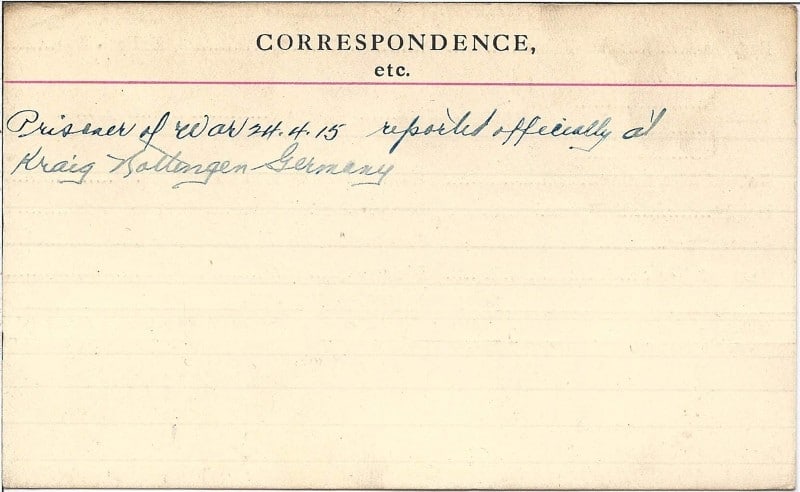 CORRESPONDENCE,
etc.
Prisoner of War 24.4.15 reported officially at
Kraig Nottengen Germany